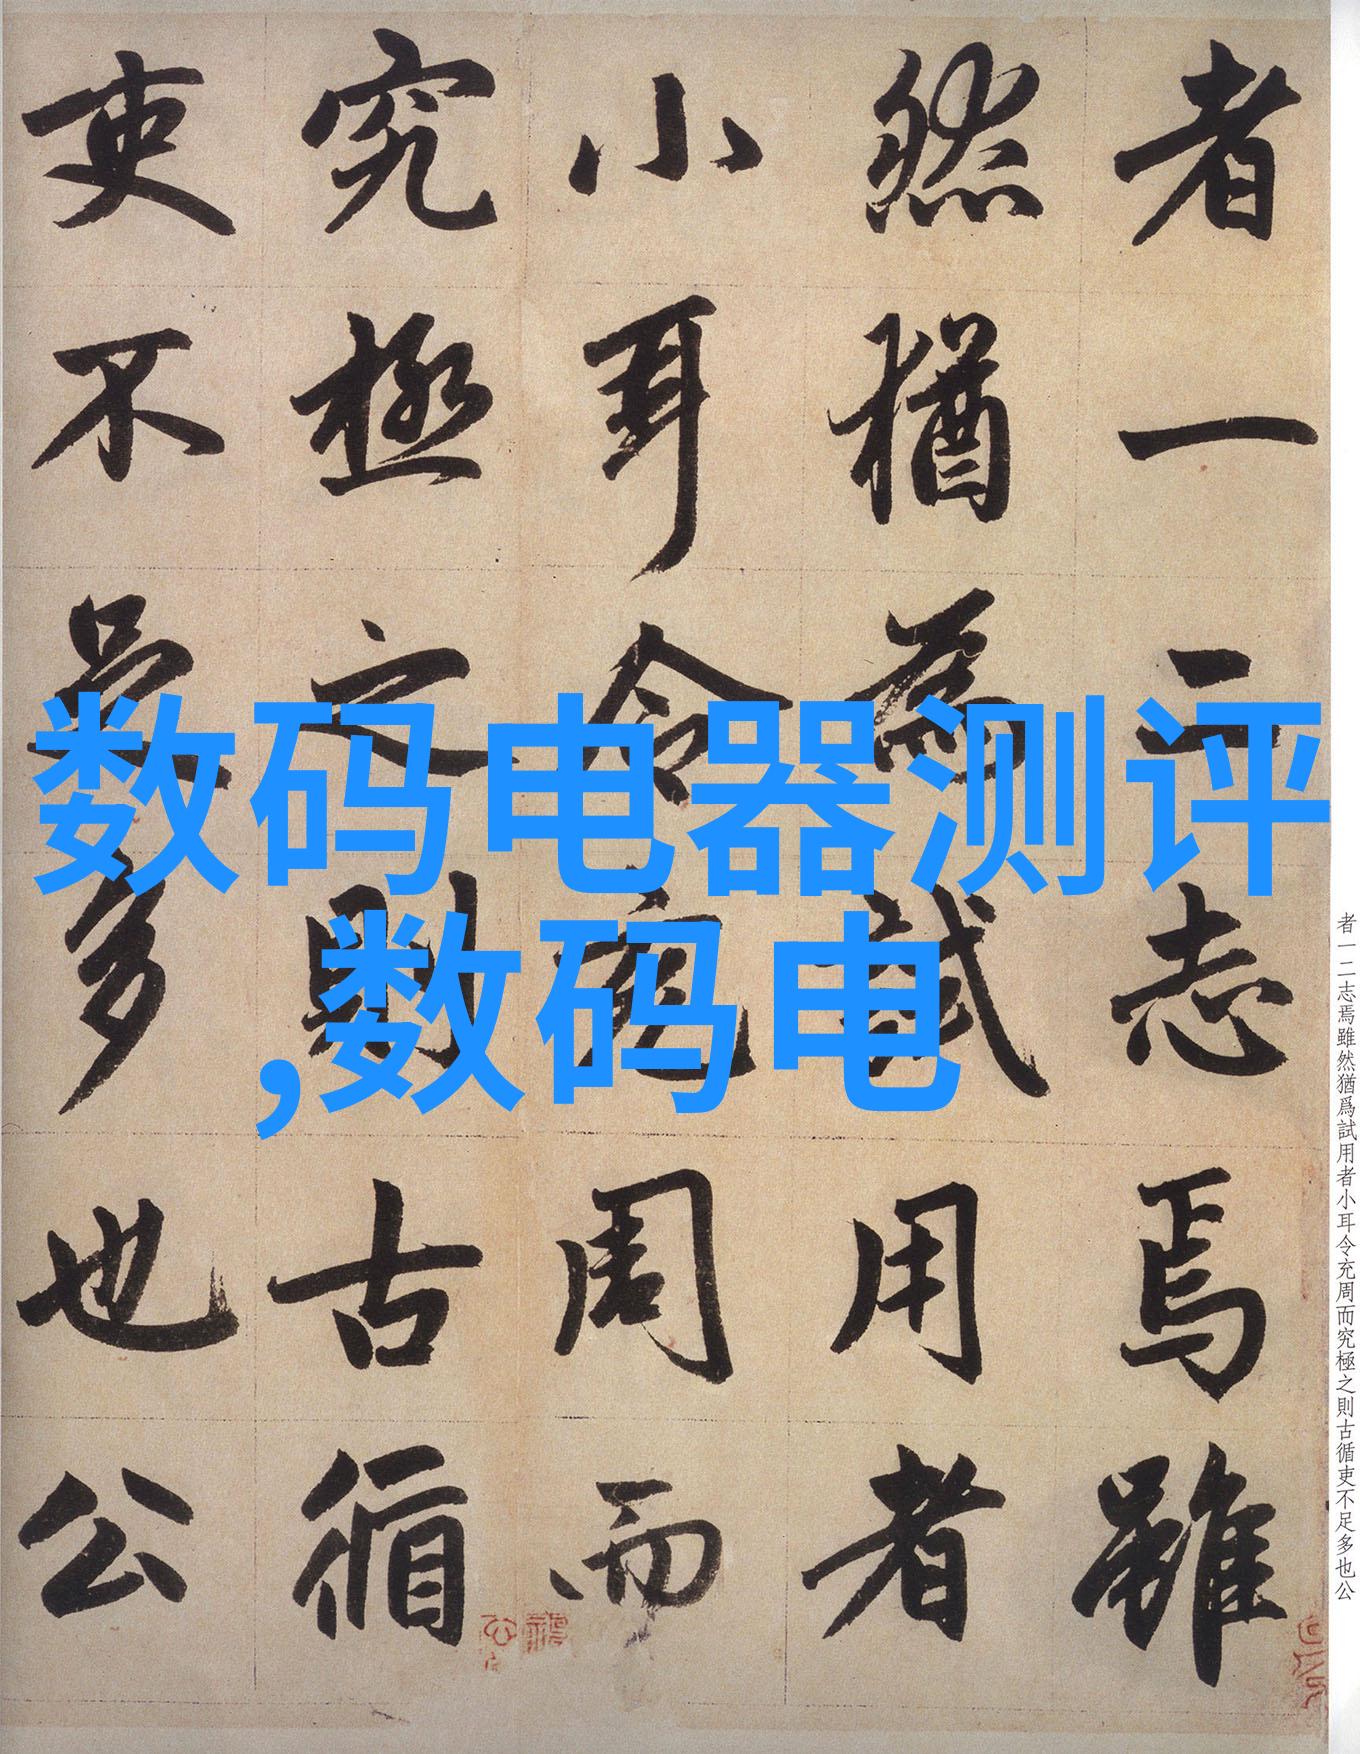 者一二志焉雖
然猶為試用者
小耳令充周而
究極之則古循
吏不足多也公
数码电器测评
,数码电
者一二志焉雖然猶爲試用者小耳令充周而究極之則古循吏不足多也公